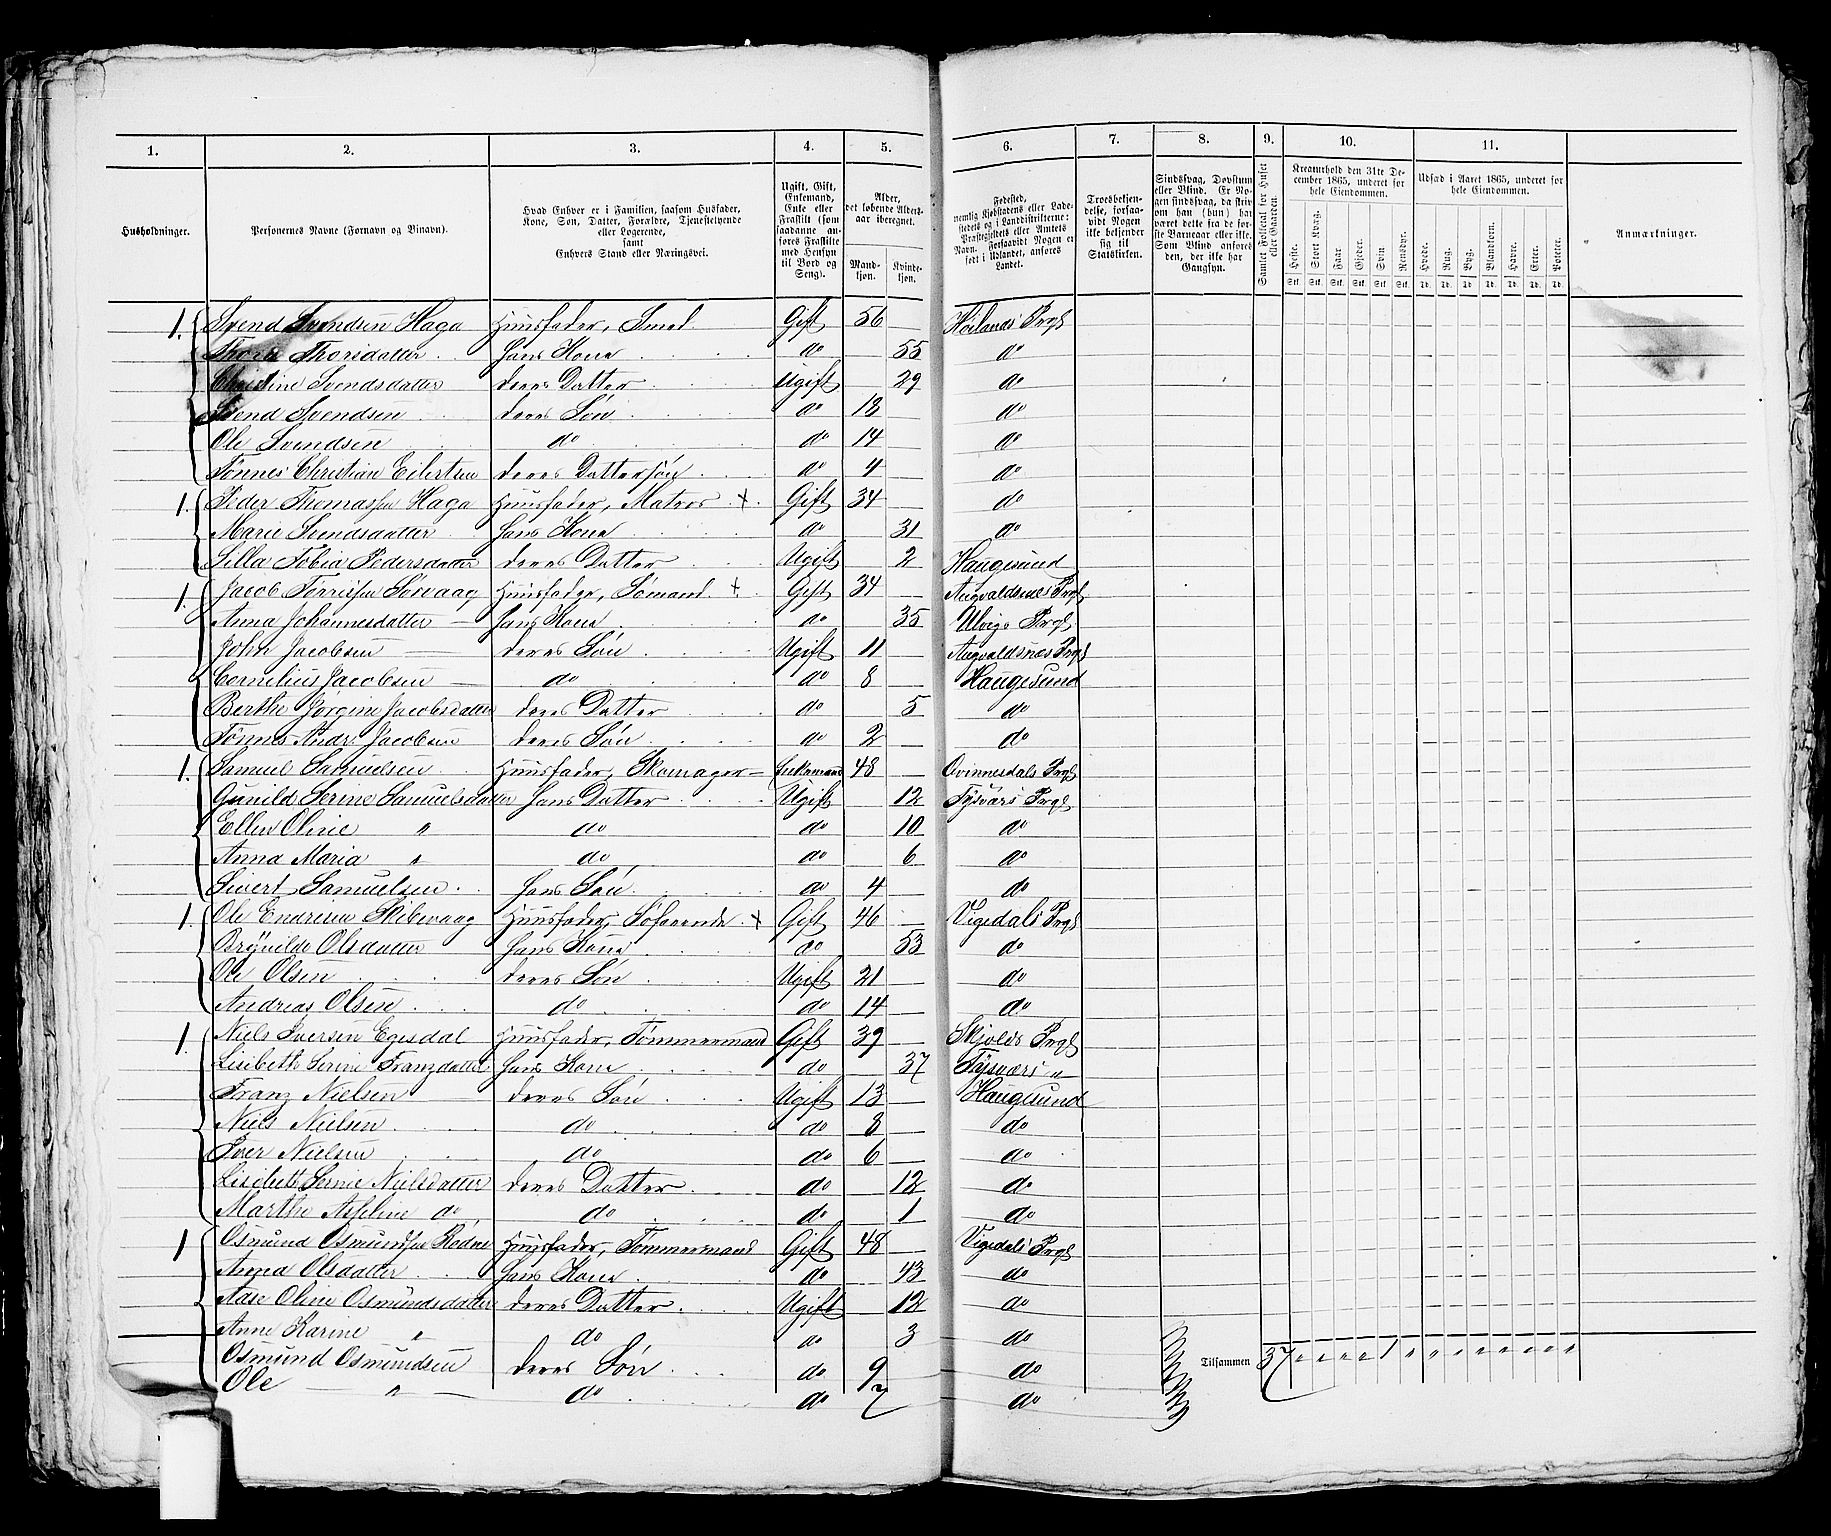 1. 2. 3. 4. 5. 6. 7. 8. 9. 10. 11.
Husholdninger.
Personernes Navne (Fornavn og Tilnavn).
Hvad Enhver er i Familien, saasom Husfader, Kone, Søn, Datter, Forældre, Tjenestetyende eller Logerende, samt Enhvers Stand eller Næringsvei.
Ugift, Gift, Enkemand, Enke eller Fraskilt (som saadanne anføres Fraskilte med Hensyn til Bord og Seng).
Alder, det løbende Aldersaar iberegnet.
Mandkjøn. Kvindekjøn.
Fødested, nemlig Kjøbstadens eller Ladestedets og i Landdistrikterne: Præstegjeldets eller Amtets Navn. Forsaavidt Nogen er født i Udlandet, anføres Landet.
Troesbekjendelse, forsaavidt Nogen ikke bekjender sig til Statskirken.
Sindssvag, Døvstum eller Blind. Er Nogen sindssvag, da skrives om han (hun) har været dette fra de første Barneaar eller ikke. Som Blind anføres den, der ikke har Gangsyn.
Samlet Folketal for Huset eller Gaarden.
Kreaturhold den 31te December 1865, underet for hele Eiendommen.
Heste. Stort Kvæg. Faar. Gjeder. Svin. Rensdyr.
Udsæd i Aaret 1865, underet for hele Eiendommen.
Hvede. Rug. Byg. Blandkorn. Havre. Erter. Poteter.
Stk. Stk. Stk. Stk. Stk. Stk. Td. Td. Td. Td. Td. Td. Td.
Anmærkninger.
1. Svend Svendsen Haga Huusfader, Smed Gift 56 Høilands Prgl
Thore Thorsdatter Hans Kone do 55 do
Christine Svendsdatter deres Datter Ugift 29 do
Svend Svendsen deres Søn do 18 do
Ole Svendsen do do 14 do
Tønnes Christian Eilertsen deres Dattersøn do 4 do
1. Peder Thomassen Haga Huusfader, Matros + Gift 34 do
Marie Svendsdatter Hans Kone do 31 do
Silla Tobia Pedersdatter deres Datter Ugift 2 Haugesund
1. Jacob Tørrissen Sørvaag Huusfader, Sømand + Gift 34 Augvaldsnes Prgl
Anna Johannesdatter Hans Kone do 35 Ulvigs Prgl
John Jacobsen deres Søn Ugift 11 Augvaldsnes Prgl
Cornelius Jacobsen do do 8 Haugesund
Berthe Jørgine Jacobsdatter deres Datter do 5 do
Tønnes Andr. Jacobsen deres Søn do 2 do
1. Samuel Samuelsen Huusfader, Skomager Enkemand 48 Qvinnesdals Prgl
Gunild Serine Samuelsdatter Hans Datter Ugift 12 Tysvärs Prgl
Ellen Oline " do do 10 do
Anna Maria " do do 6 do
Sivert Samuelsen Hans Søn do 4 do
1. Ole Endresen Skibevaag Huusfader, Søfarende + Gift 46 Vigedals Prgl
Brynilde Olsdatter Hans Kone do 53 do
Ole Olsen deres Søn Ugift 21 do
Andreas Olsen do do 14 do
1. Niels Iversen Egesdal Huusfader, Tømmermand Gift 39 Skjolds Prgl
Lisibeth Serine Franzdatter Hans Kone do 37 Tysværs "
Franz Nielsen deres Søn Ugift 13 Haugesund
Niels Nielsen do do 8 do
Iver Nielsen do do 6 do
Lisibeth Serine Nielsdatter deres Datter do 12 do
Marthe do do do 1 do
1 Osmund Osmundsen Rødne Huusfader, Tømmermand Gift 48 Vigedals Prgl
Anna Olsdatter Hans Kone do 43 do
Aase Oline Osmundsdatter deres Datter Ugift 12 do
Anne Karine " do do 3 do
Osmund Osmundsen deres Søn do 9 do
Ole " do do 7 do
Tilsammen 37 " " " " 1 " " " " " " " "